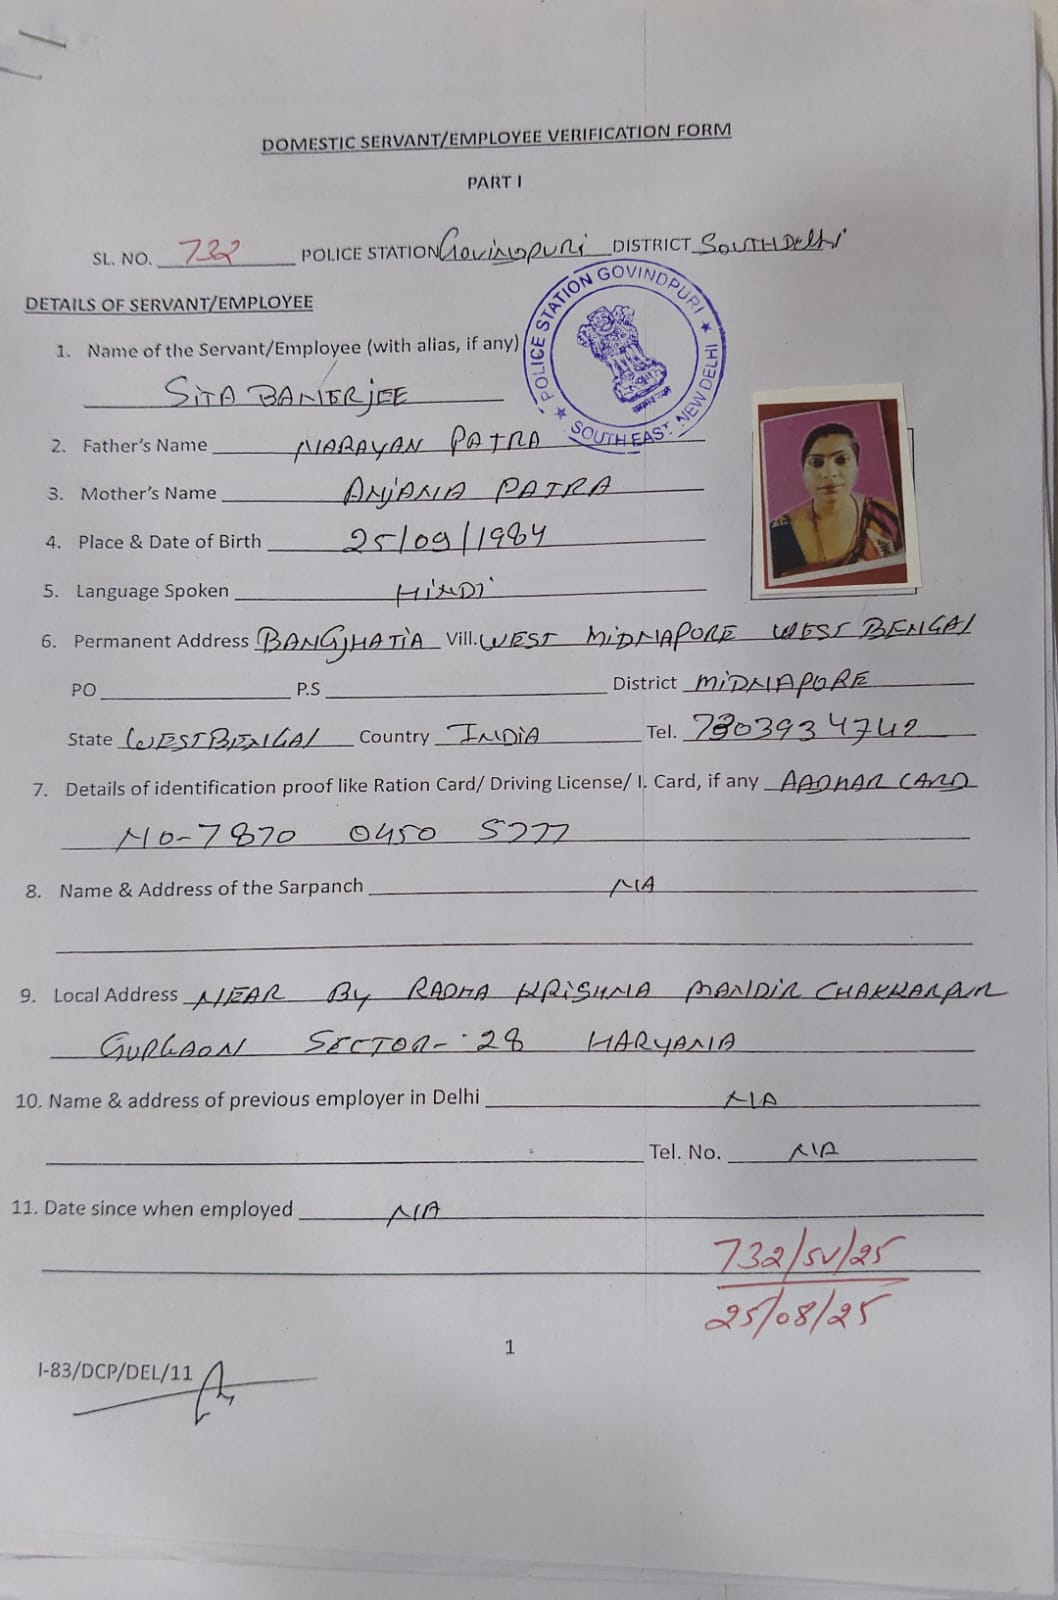 DOMESTIC SERVANT/EMPLOYEE VERIFICATION FORM
PART I
SL. NO. 732 POLICE STATION GOVINDPURI DISTRICT SOUTH DELHI
POLICE STATION GOVINDPURI
SOUTH EAST. NEW DELHI
DETAILS OF SERVANT/EMPLOYEE
1. Name of the Servant/Employee (with alias, if any)
SITA BANERJEE
2. Father's Name NARAYAN PATRA
3. Mother's Name ANJANA PATRA
4. Place & Date of Birth 25/09/1984
5. Language Spoken HINDI
6. Permanent Address BANGJHATIA Vill. WEST MIDNAPORE WEST BENGAL
PO P.S District MIDNAPORE
State WEST BENGAL Country INDIA Tel. 7303934742
7. Details of identification proof like Ration Card/ Driving License/ I. Card, if any AADHAR CARD
NO-7870 0450 5777
8. Name & Address of the Sarpanch NA
9. Local Address NEAR BY RADHA KRISHNA MANDIR CHAKKARPUR
GURGAON SECTOR-28 HARYANA
10. Name & address of previous employer in Delhi NA
Tel. No. NA
11. Date since when employed NA
732/SV/25
25/08/25
1
I-83/DCP/DEL/11